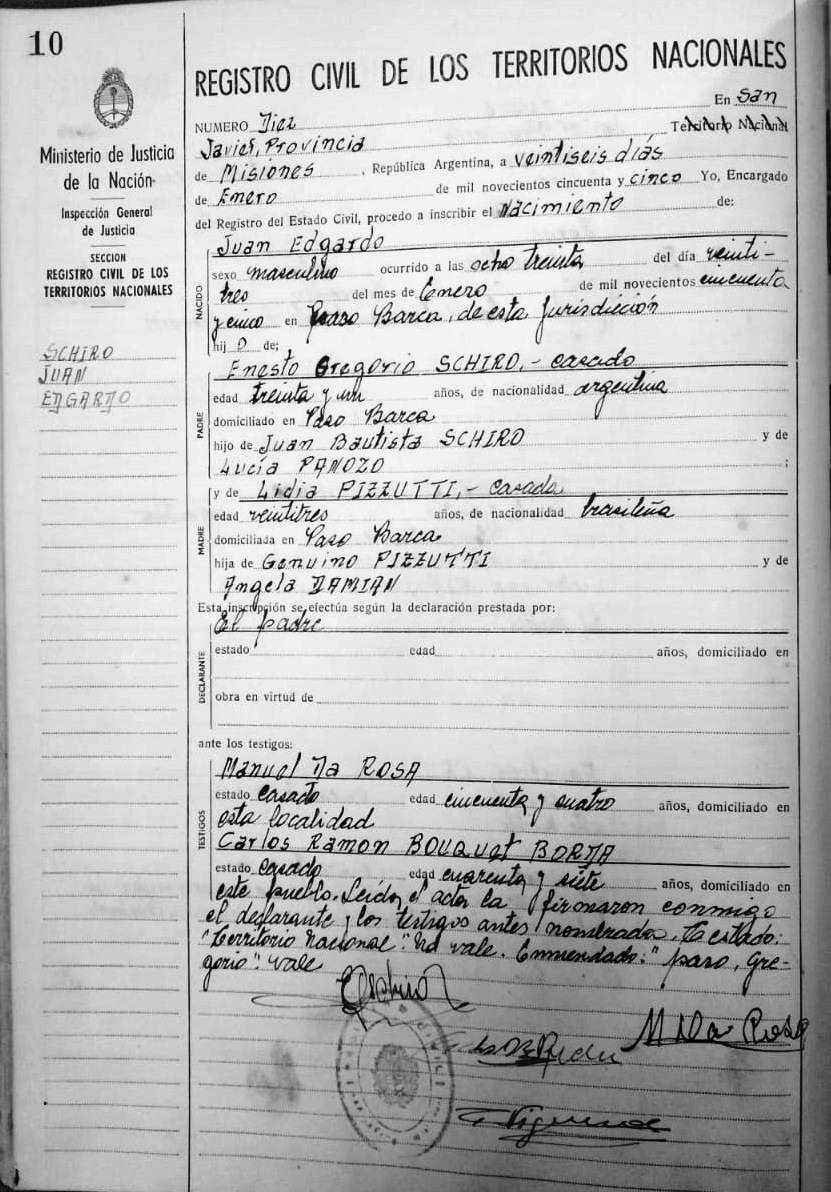 10
Ministerio de Justicia
de la Nación
Inspección General
de Justicia
SECCION
REGISTRO CIVIL DE LOS
TERRITORIOS NACIONALES
SCHIRO
JUAN
EDGARDO
REGISTRO CIVIL DE LOS TERRITORIOS NACIONALES
NUMERO Diez En San
Javier, Provincia Territorio Nacional
de Misiones, República Argentina, a veintiseis días
de Enero de mil novecientos cincuenta y cinco Yo, Encargado
del Registro del Estado Civil, procedo a inscribir el Nacimiento de:
NACIDO
Juan Edgardo
sexo masculino ocurrido a las ocho treinta del día veinti-
tres del mes de Enero de mil novecientos cincuenta
y cinco en Paso Barca, de esta Jurisdicción
hij o de;
PADRE
Enesto Gregorio SCHIRO.- casado
edad treinta y un años, de nacionalidad argentina
domiciliado en Paso Barca
hijo de Juan Bautista SCHIRO y de
Lucía PANOZO ;
MADRE
y de Lidia PIZZUTTI,- casada
edad veintitres años, de nacionalidad brasileña
domiciliada en Paso Barca
hija de Genuino PIZZUTTI y de
Angela DAMIAN
Esta inscripción se efectúa según la declaración prestada por:
DECLARANTE
El padre
estado edad años, domiciliado en
obra en virtud de
ante los testigos:
TESTIGOS
Manuel Da ROSA
estado casado edad cincuenta y cuatro años, domiciliado en
esta localidad
Carlos Ramon BOUQUEt BORJA
estado casado edad cuarenta y siete años, domiciliado en
este pueblo. Leída el acta la firmaron conmigo
el declarante y los testigos antes nombrados. Testado:
"Territorio Nacional": No vale. Enmendado: "paso, Gre-
gorio": vale
M Da Rosa